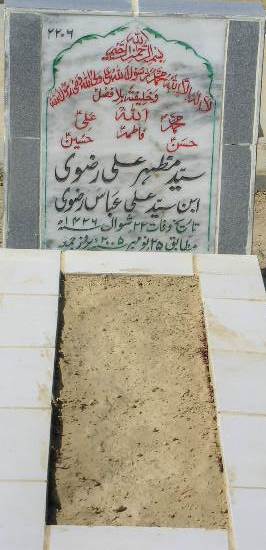 ۲۲۰۶
بسم اللہ الرحمن الرحیم
لا الہ الا اللہ محمد رسول اللہ علی ولی اللہ وصی رسول اللہ
وخلیفتہ بلا فصل
محمدؐ اللہ علیؑ
حسنؑ فاطمہؑ حسینؑ
سید مظہر علی رضوی
ابن سید علی عباس رضوی
تاریخ وفات ۲۲ شوال ۱۴۲۶ھ
مطابق ۲۵ نومبر ۲۰۰۵ء بروز جمعہ